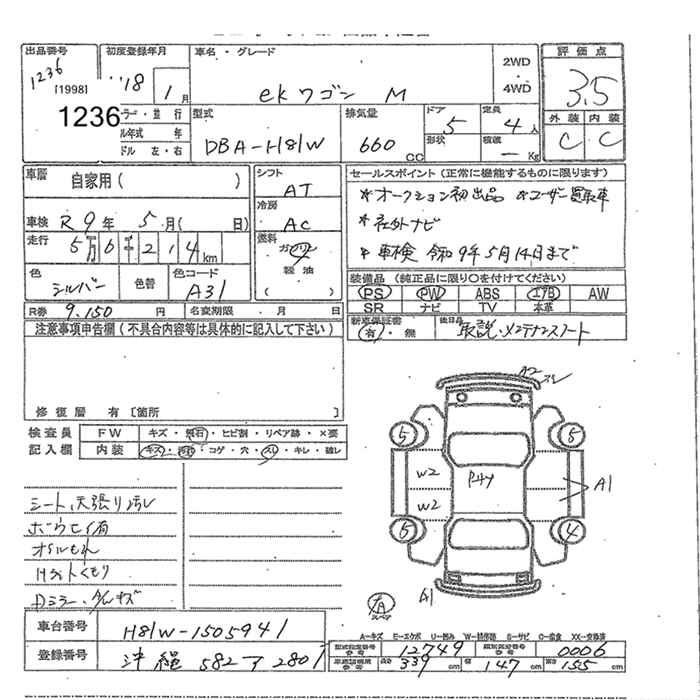 出品番号 初度登録年月 車名・グレード 評価点
1236 '18 1月 ekワゴン M 2WD 4WD 3.5
[1998]
1236
ラー・並 行 型式 排気量 ドア 定員 外装 内装
ル年式 年 DBA-H81W 660 CC 5 4人 C C
ドル 左・右 形状 積載 - Kg
車歴 自家用( ) シフト AT セールスポイント(正常に機能するものに限ります)
冷房 AC *オークション初出品 *ユーザー買取車
車検 R9年 5月( 日) *社外ナビ
走行 5万6千214km 燃料 ガソリン 軽油 ( ) *車検 令和9年5月14日まで
色 シルバー 色替 色コード A31
装備品(純正品に限り○を付けてください)
PS PW ABS エアB AW
SR ナビ TV 本革
R券 9,150 円 名変期限 ・ 月 日
新車保証書 有・無 後日品 取説・メンテナンスノート
注意事項申告欄(不具合内容等は具体的に記入して下さい)
修復歴 有[箇所 ]
検査員 FW キズ・飛石・ヒビ割・リペア跡・×要
記入欄 内装 キズ・汚れ・コゲ・穴・スレ・キレ・破レ
A2 スレ
5 5
W2 P4Y A1
W2
5 4
A1
有 スペア
シート、天張り汚れ
ボウセイ有
オイルもれ
Hライトくもり
Dミラー・
A-キズ E-エクボ U-凹み W-補修跡 S-サビ C-腐食 XX-交換済
車台番号 H81W-1505941
型式指定番号 12749 類別区分番号 0006
登録番号 沖縄 582 ア 2801
長さ 339 cm 幅 147 cm 高さ 155 cm